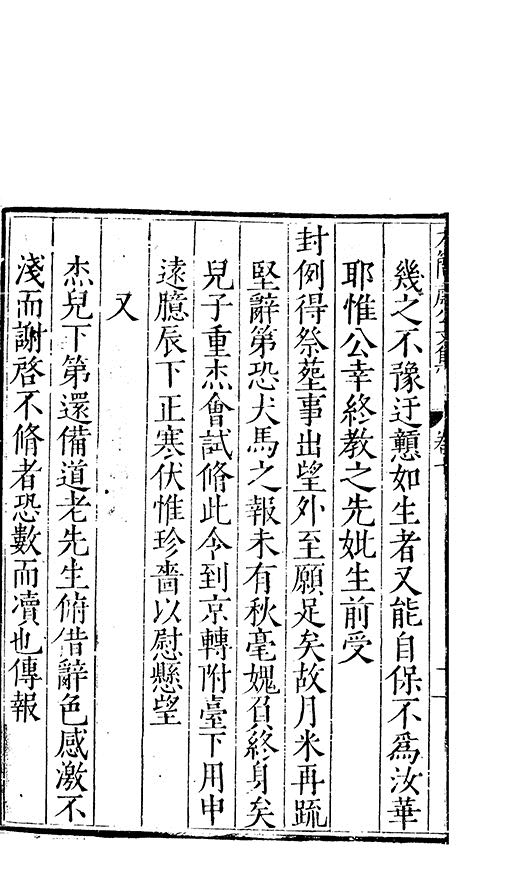 幾之不豫迂戇如生者又能自保不爲汝華
耶惟公幸終教之先妣生前受
封例得祭塟事出望外至願足矣故月米再䟽
堅辭第恐犬馬之報未有秋毫媿負終身矣
兒子重杰會試脩此令到京轉附臺下用申
遠臆辰下正寒伏惟珍嗇以慰懸望
又
杰兒下第還備道老先生俯借辭色感激不
淺而謝啓不脩者恐數而凟也傳報